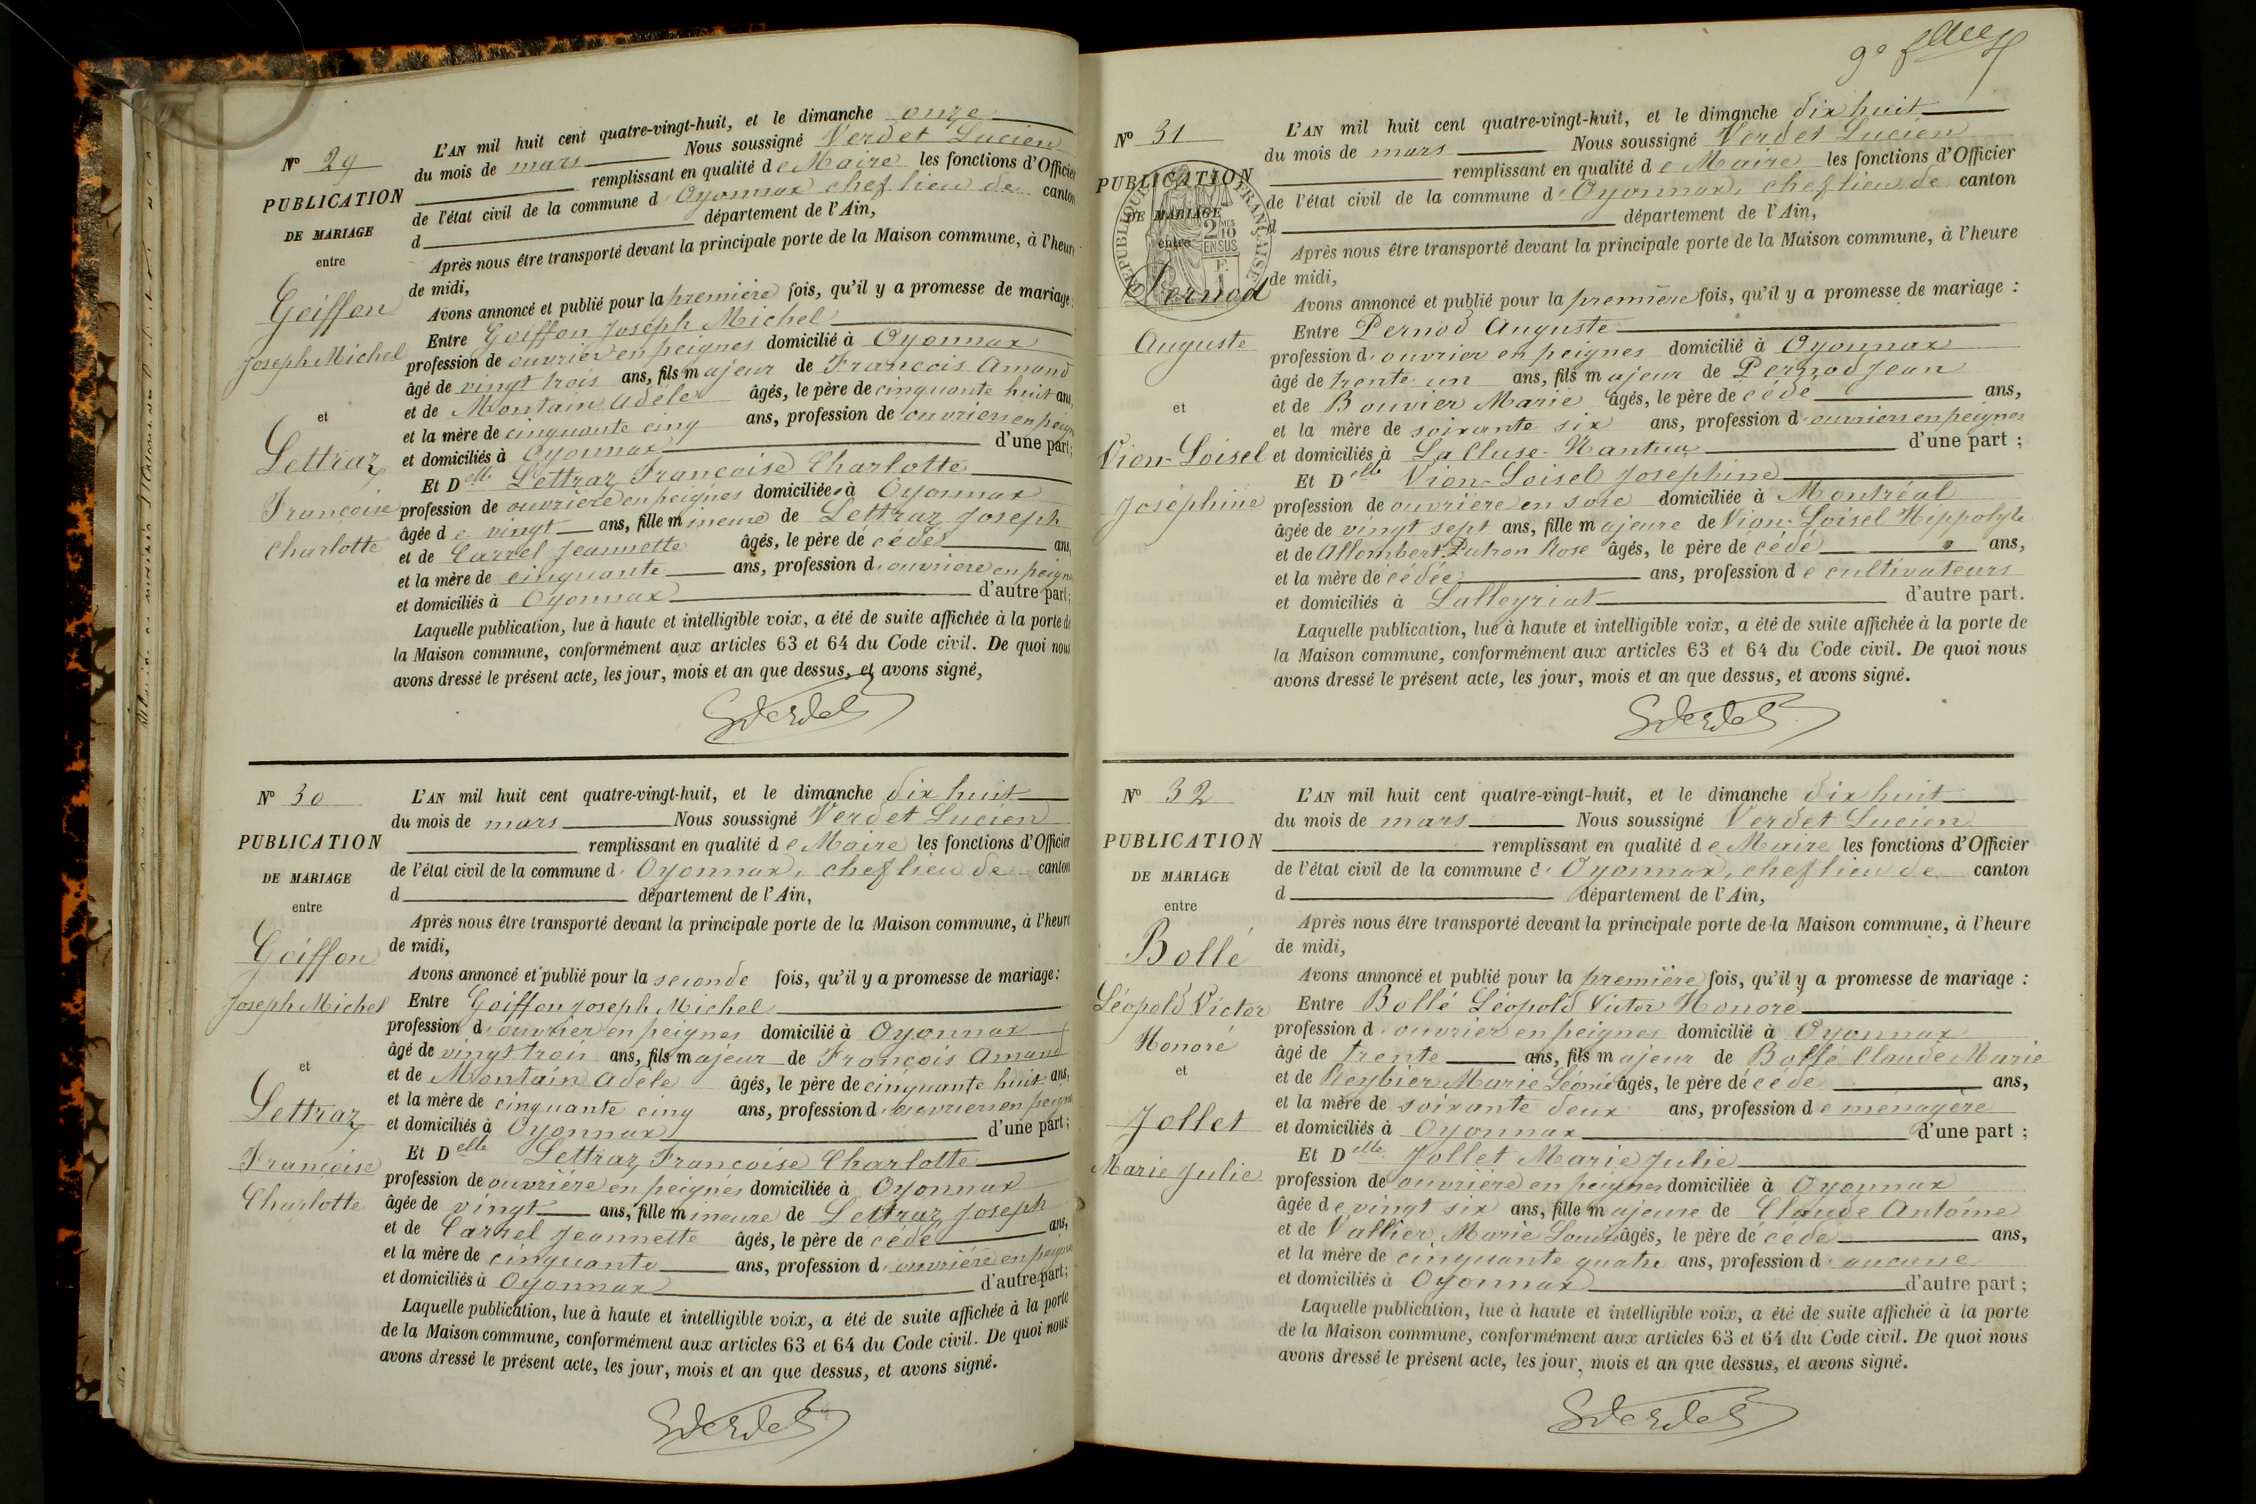 Nº 29
PUBLICATION
DE MARIAGE
entre
Goiffon
Joseph Michel
et
Lettraz
Françoise
Charlotte
L'AN mil huit cent quatre-vingt-huit, et le dimanche onze
du mois de mars Nous soussigné Verdet Lucien
remplissant en qualité de Maire les fonctions d'Officier
de l'état civil de la commune d'Oyonnax chef lieu de canton
d département de l'Ain,
Après nous être transporté devant la principale porte de la Maison commune, à l'heure
de midi,
Avons annoncé et publié pour la première fois, qu'il y a promesse de mariage:
Entre Goiffon Joseph Michel
profession de ouvrier en peignes domicilié à Oyonnax
âgé de vingt trois ans, fils majeur de François Amand
et de Montain Adèle âgés, le père de cinquante huit ans,
et la mère de cinquante cinq ans, profession de ouvriers en peignes
et domiciliés à Oyonnax d'une part;
Et Delle Lettraz Françoise Charlotte
profession de ouvrière en peignes domiciliée à Oyonnax
âgée de vingt ans, fille mineure de Lettraz Joseph
et de Carrel Jeannette âgés, le père décédé ans,
et la mère de cinquante ans, profession d'ouvrière en peignes
et domiciliés à Oyonnax d'autre part;
Laquelle publication, lue à haute et intelligible voix, a été de suite affichée à la porte de
la Maison commune, conformément aux articles 63 et 64 du Code civil. De quoi nous
avons dressé le présent acte, les jour, mois et an que dessus, et avons signé,
Nº 30
PUBLICATION
DE MARIAGE
entre
Goiffon
Joseph Michel
et
Lettraz
Françoise
Charlotte
L'AN mil huit cent quatre-vingt-huit, et le dimanche dix huit
du mois de mars Nous soussigné Verdet Lucien
remplissant en qualité de Maire les fonctions d'Officier
de l'état civil de la commune d'Oyonnax, chef lieu de canton
d département de l'Ain,
Après nous être transporté devant la principale porte de la Maison commune, à l'heure
de midi,
Avons annoncé et publié pour la seconde fois, qu'il y a promesse de mariage:
Entre Goiffon Joseph Michel
profession d'ouvrier en peignes domicilié à Oyonnax
âgé de vingt trois ans, fils majeur de François Amand
et de Montain Adèle âgés, le père de cinquante huit ans,
et la mère de cinquante cinq ans, profession d'ouvriers en peignes
et domiciliés à Oyonnax d'une part;
Et Delle Lettraz Françoise Charlotte
profession de ouvrière en peignes domiciliée à Oyonnax
âgée de vingt ans, fille mineure de Lettraz Joseph
et de Carrel Jeannette âgés, le père de cédé ans,
et la mère de cinquante ans, profession d'ouvrière en peignes
et domiciliés à Oyonnax d'autre part;
Laquelle publication, lue à haute et intelligible voix, a été de suite affichée à la porte
de la Maison commune, conformément aux articles 63 et 64 du Code civil. De quoi nous
avons dressé le présent acte, les jour, mois et an que dessus, et avons signé.
9e
Nº 31
PUBLICATION
DE MARIAGE
entre
RÉPUBLIQUE FRANÇAISE
2/10
EN SUS
Pernod
Auguste
et
Vion-Loisel
Joséphine
L'AN mil huit cent quatre-vingt-huit, et le dimanche dix huit
du mois de mars Nous soussigné Verdet Lucien
remplissant en qualité de Maire les fonctions d'Officier
de l'état civil de la commune d'Oyonnax, chef lieu de canton
d département de l'Ain,
Après nous être transporté devant la principale porte de la Maison commune, à l'heure
de midi,
Avons annoncé et publié pour la première fois, qu'il y a promesse de mariage :
Entre Pernod Auguste
profession d'ouvrier en peignes domicilié à Oyonnax
âgé de trente un ans, fils majeur de Pernod Jean
et de Bouvier Marie âgés, le père de cédé ans,
et la mère de soixante six ans, profession d'ouvriers en peignes
et domiciliés à La Cluse-Nantua d'une part ;
Et Delle Vion-Loisel Josephine
profession de ouvrière en soie domiciliée à Montréal
âgée de vingt sept ans, fille majeure de Vion-Loisel Hippolyte
et de Allombert Patron Rose âgés, le père de cédé ans,
et la mère décédée ans, profession de cultivateurs
et domiciliés à Lalleyriat d'autre part.
Laquelle publication, lue à haute et intelligible voix, a été de suite affichée à la porte de
la Maison commune, conformément aux articles 63 et 64 du Code civil. De quoi nous
avons dressé le présent acte, les jour, mois et an que dessus, et avons signé.
Nº 32
PUBLICATION
DE MARIAGE
entre
Bollé
Léopold Victor
Honoré
et
Jollet
Marie Julie
L'AN mil huit cent quatre-vingt-huit, et le dimanche dix huit
du mois de mars Nous soussigné Verdet Lucien
remplissant en qualité de Maire les fonctions d'Officier
de l'état civil de la commune d'Oyonnax, chef lieu de canton
d département de l'Ain,
Après nous être transporté devant la principale porte de la Maison commune, à l'heure
de midi,
Avons annoncé et publié pour la première fois, qu'il y a promesse de mariage :
Entre Bollé Léopold Victor Honoré
profession d'ouvrier en peignes domicilié à Oyonnax
âgé de trente ans, fils majeur de Bollé Claude Marie
et de Reybier Marie Léonie âgés, le père décédé ans,
et la mère de soixante deux ans, profession de ménagère
et domiciliés à Oyonnax d'une part ;
Et Delle Jollet Marie Julie
profession de ouvrière en peignes domiciliée à Oyonnax
âgée de vingt six ans, fille majeure de Claude Antoine
et de Vallier Marie Louise âgés, le père décédé ans,
et la mère de cinquante quatre ans, profession d aucune
et domiciliés à Oyonnax d'autre part ;
Laquelle publication, lue à haute et intelligible voix, a été de suite affichée à la porte
de la Maison commune, conformément aux articles 63 et 64 du Code civil. De quoi nous
avons dressé le présent acte, les jour, mois et an que dessus, et avons signé.